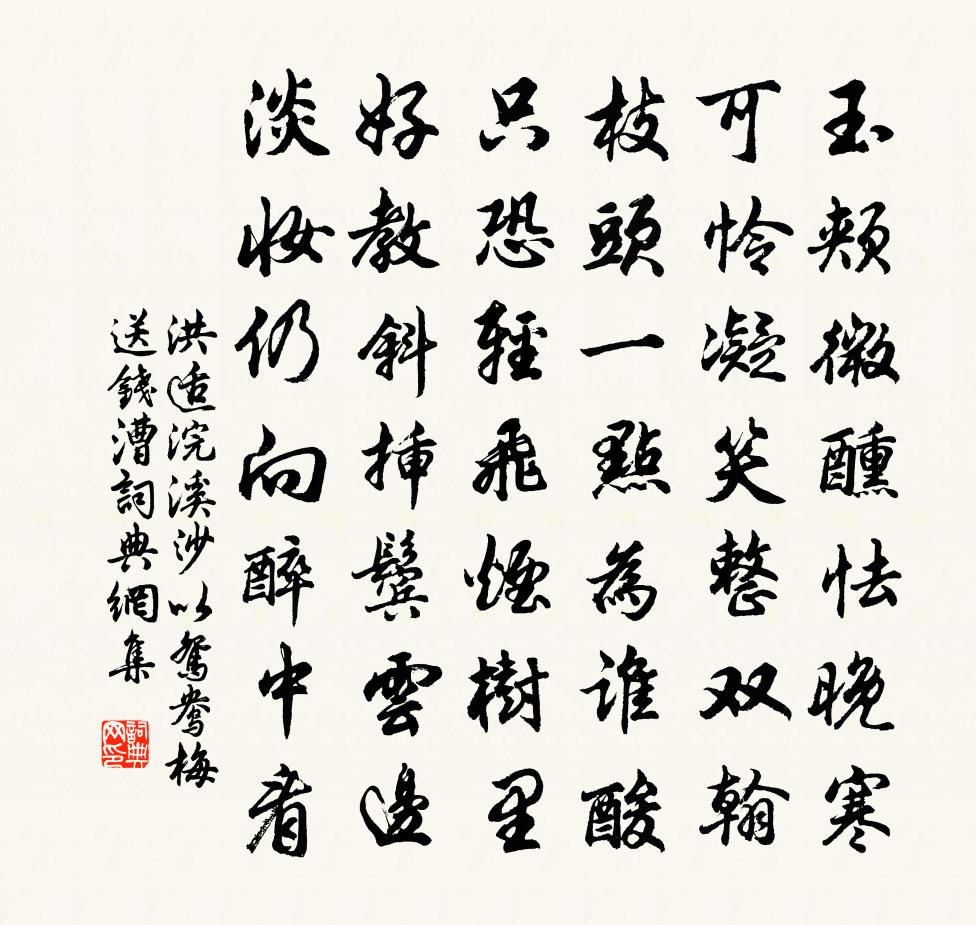 玉頰微醺怯晚寒
可怜凝笑整双翰
枝頭一點為誰酸
只恐輕飛煙樹里
好教斜插鬢雲邊
淡妝仍向醉中看
洪适浣溪沙以鴛鴦梅
送錢漕詞典網集
詞典网印